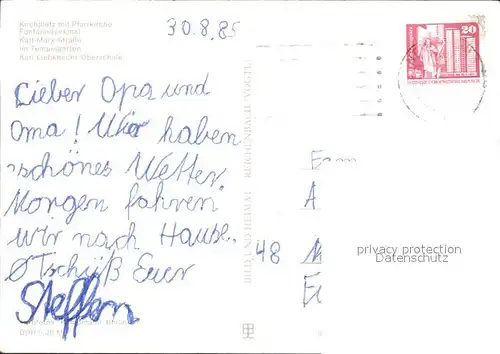 Kirchplatz mit Pfarrkirche
Fontanedenkmal
Karl-Marx-Straße
Im Tempelgarten
Karl-Liebknecht-Oberschule
30.8.85
20
Lieber Opa und
Oma! Wir haben
schönes Wetter.
Morgen fahren
wir nach Hause.
Tschüß Euer
Steffen
BILD UND HEIMAT REICHENBACH (VOGTL)
A
48
privacy protection
Datenschutz